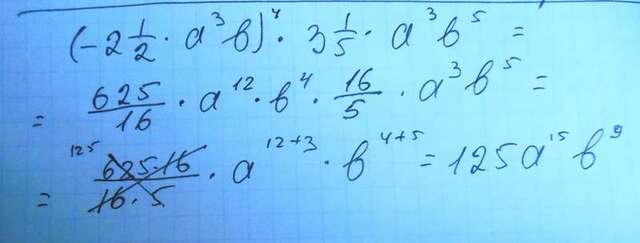 (-2 1/2 · a³b)⁴ · 3 1/5 · a³b⁵ =
= 625/16 · a¹² · b⁴ · 16/5 · a³b⁵ =
= 125 625·16/16·5 · a¹²⁺³ · b⁴⁺⁵ = 125a¹⁵b⁹